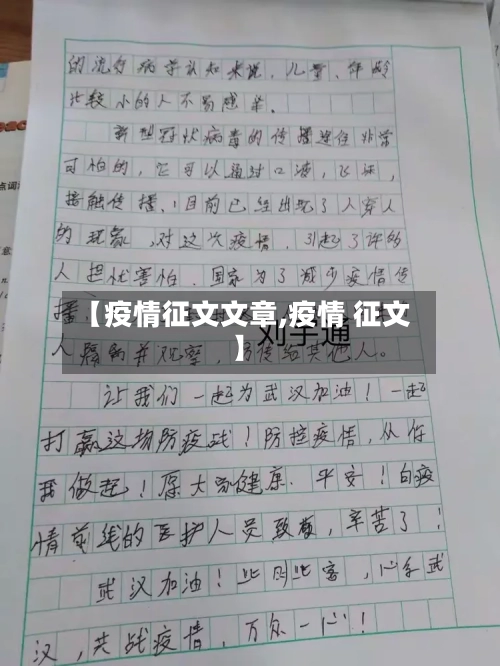 的流行病学认知来说，儿童、年龄
比较小的人不易感染。
新型冠状病毒的传播途径非常
可怕的，它可以通过口液，飞沫，
接触传播，目前已经出现了人穿人
的现象，对这次疫情，引起了许多
人担忧害怕，国家为了减少疫情传
播
【疫情征文文章,疫情 征文
】
刘宇通
人隔离并观察，防传给其他人。
让我们一起为武汉加油！一起
打赢这场防疫战！防控疫情，从你
我做起！愿大家健康、平安！向疫
情前线的医护人员致敬，辛苦了！
武汉加油！此时此客，心系武
汉，共战疫情，万众一心！
点词